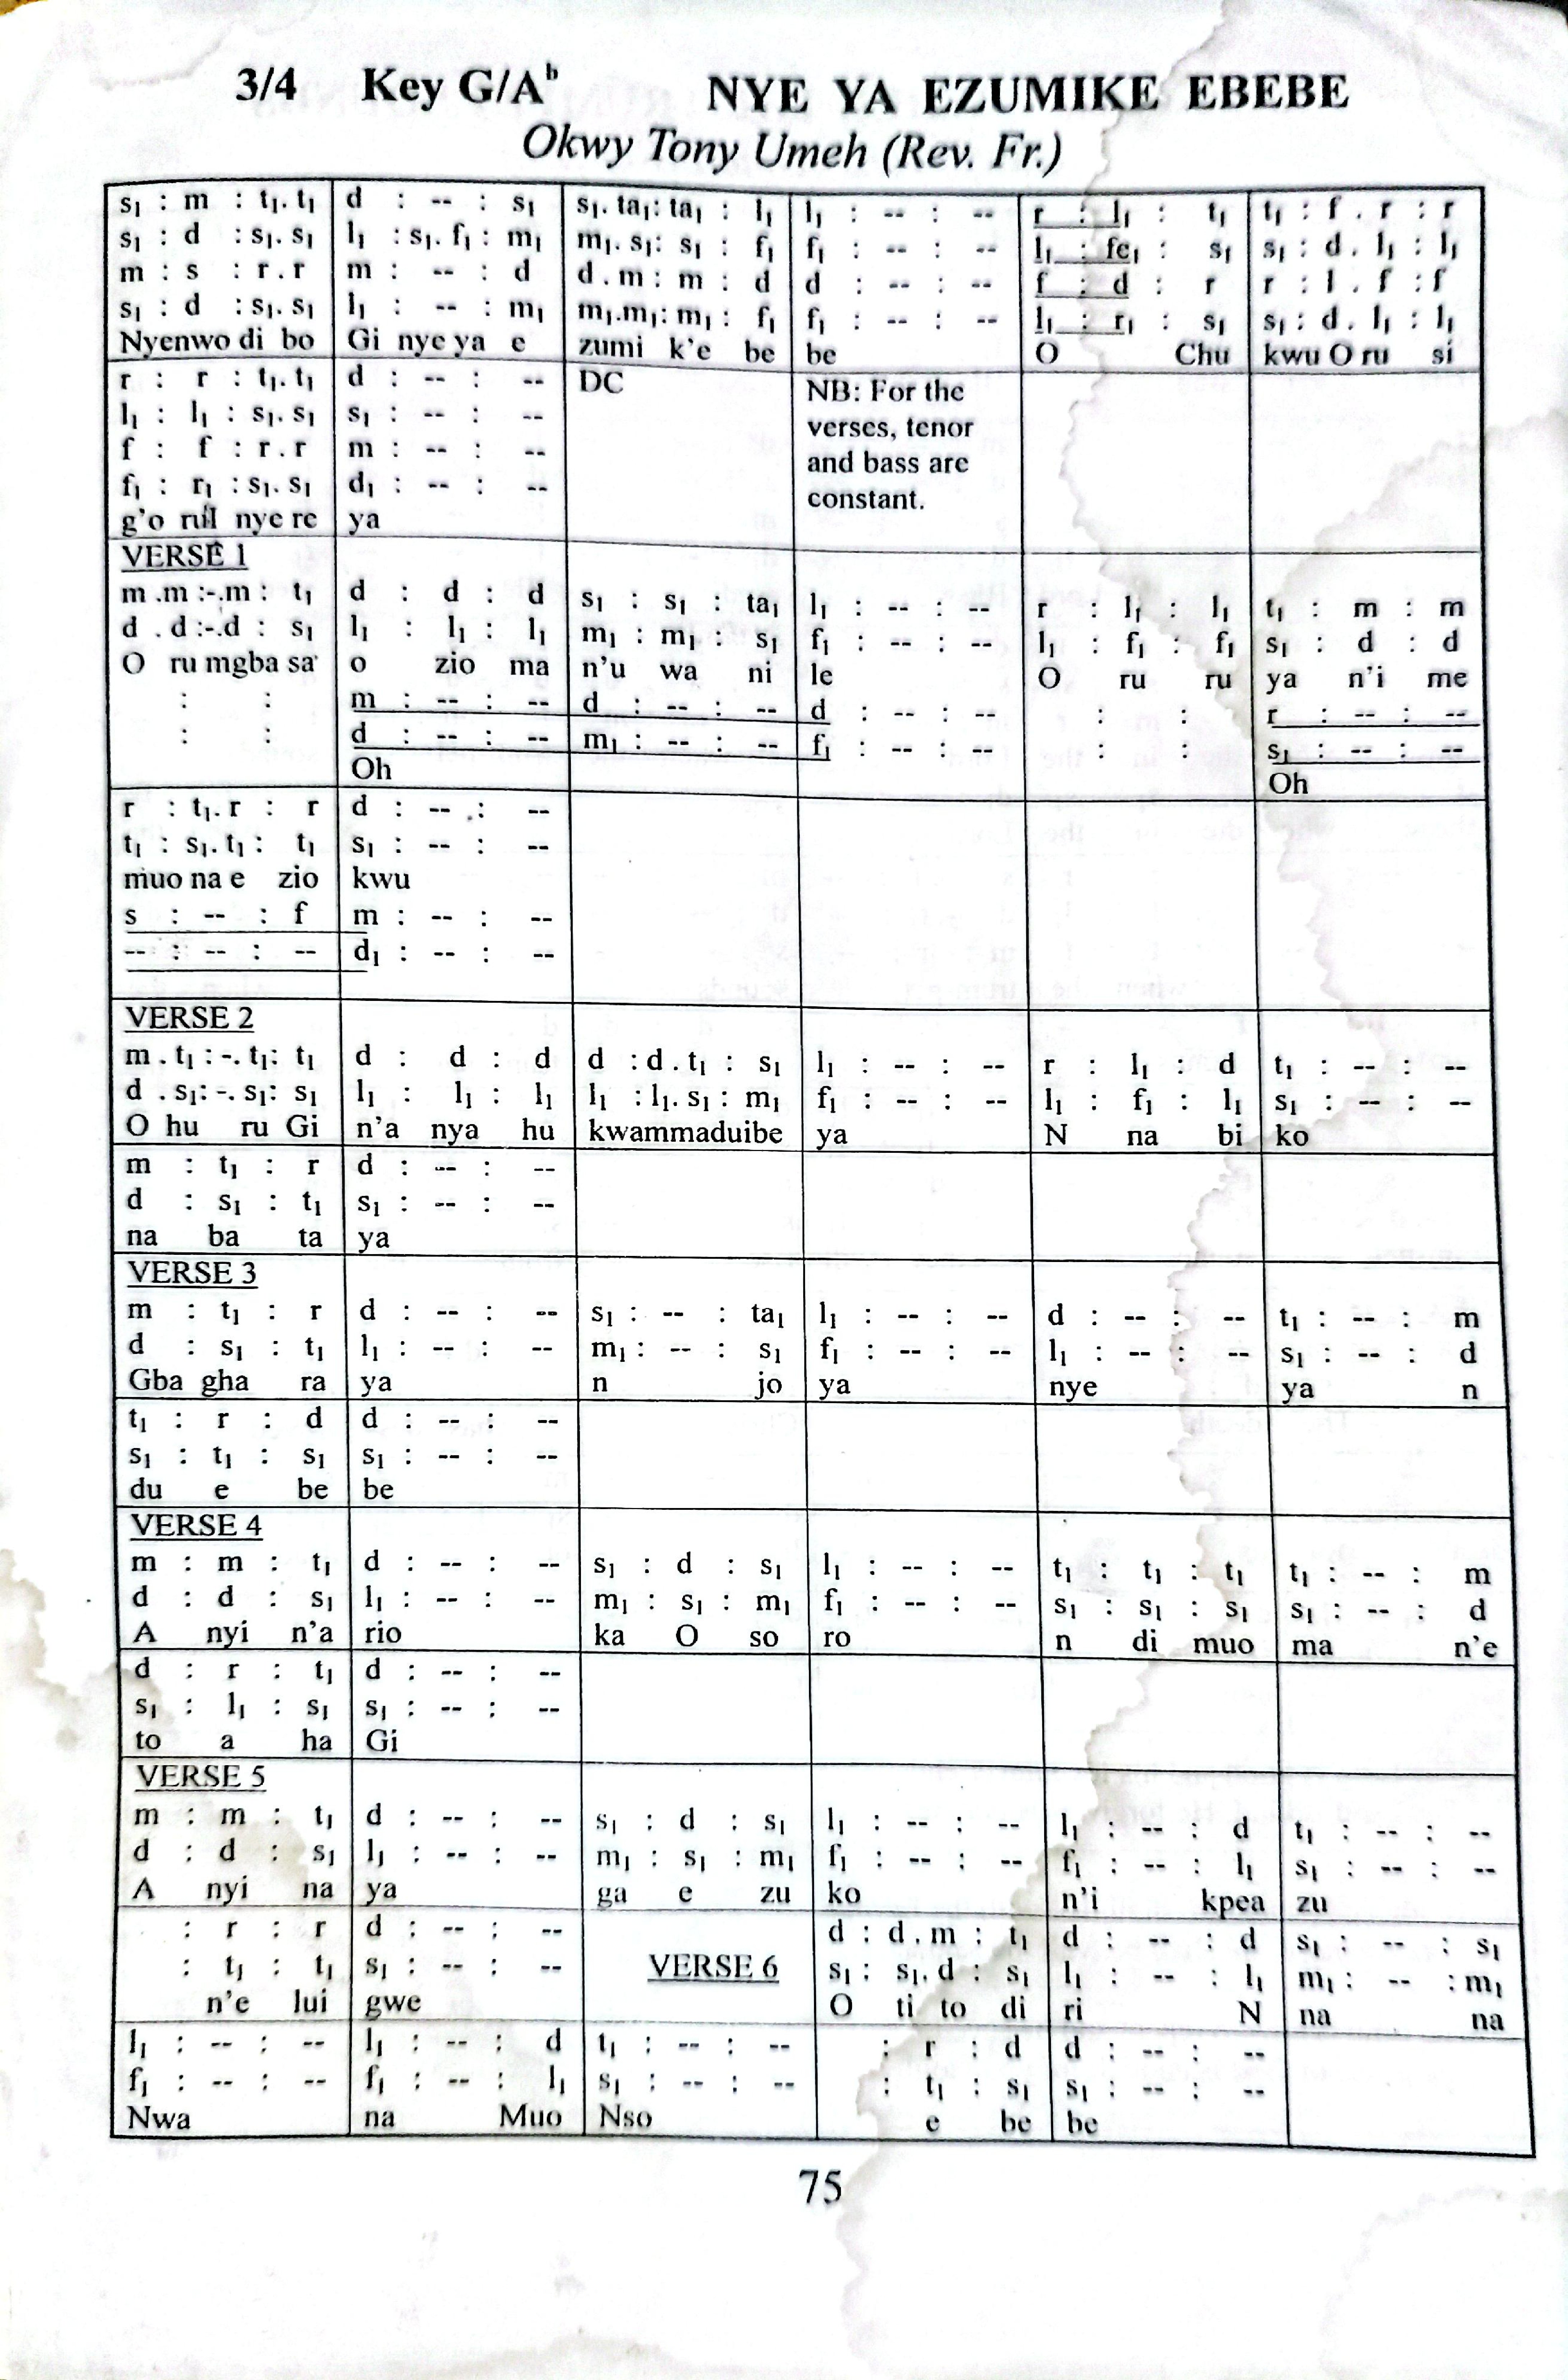 3/4 Key G/Aᵇ NYE YA EZUMIKE EBEBE
Okwy Tony Umeh (Rev. Fr.)
s₁ : m : t₁. t₁ | d : -- : s₁ | s₁. ta₁: ta₁ : l₁ | l₁ : -- : -- | r : l₁ : t₁ | t₁ : f . r : r
s₁ : d : s₁. s₁ | l₁ : s₁. f₁ : m₁ | m₁. s₁: s₁ : f₁ | f₁ : -- : -- | l₁ : fe₁ : s₁ | s₁ : d . l₁ : l₁
m : s : r . r | m : -- : d | d . m : m : d | d : -- : -- | f : d : r | r : l . f : f
s₁ : d : s₁. s₁ | l₁ : -- : m₁ | m₁.m₁: m₁ : f₁ | f₁ : -- : -- | l₁ : r₁ : s₁ | s₁ : d . l₁ : l₁
Nyenwo di bo | Gi nye ya e | zumi k'e be | be | O Chu | kwu O ru si
r : r : t₁. t₁ | d : -- : -- | DC | NB: For the
l₁ : l₁ : s₁. s₁ | s₁ : -- : -- | verses, tenor
f : f : r . r | m : -- : -- | and bass are
f₁ : r₁ : s₁. s₁ | d₁ : -- : -- | constant.
g'o nye re | ya
VERSE 1
m .m :-.m : t₁ | d : d : d | s₁ : s₁ : ta₁ | l₁ : -- : -- | r : l₁ : l₁ | t₁ : m : m
d . d :-.d : s₁ | l₁ : l₁ : l₁ | m₁ : m₁ : s₁ | f₁ : -- : -- | l₁ : f₁ : f₁ | s₁ : d : d
O ru mgba sa | o zio ma | n'u wa ni | le | O ru ru | ya n'i me
: : | m : -- : -- | d : -- : -- | d : -- : -- | : : | r : -- : --
: : | d : -- : -- | m₁ : -- : -- | f₁ : -- : -- | : : | s₁ : -- : --
Oh | Oh
r : t₁. r : r | d : -- : --
t₁ : s₁. t₁ : t₁ | s₁ : -- : --
muo na e zio | kwu
s : -- : f | m : -- : --
-- : -- : -- | d₁ : -- : --
VERSE 2
m . t₁ : -. t₁: t₁ | d : d : d | d : d . t₁ : s₁ | l₁ : -- : -- | r : l₁ : d | t₁ : -- : --
d . s₁: -. s₁: s₁ | l₁ : l₁ : l₁ | l₁ : l₁. s₁ : m₁ | f₁ : -- : -- | l₁ : f₁ : l₁ | s₁ : -- : --
O hu ru Gi | n'a nya hu | kwammaduibe | ya | N na bi | ko
m : t₁ : r | d : -- : --
d : s₁ : t₁ | s₁ : -- : --
na ba ta | ya
VERSE 3
m : t₁ : r | d : -- : -- | s₁ : -- : ta₁ | l₁ : -- : -- | d : -- : -- | t₁ : -- : m
d : s₁ : t₁ | l₁ : -- : -- | m₁ : -- : s₁ | f₁ : -- : -- | l₁ : -- : -- | s₁ : -- : d
Gba gha ra | ya | n jo | ya | nye | ya n
t₁ : r : d | d : -- : --
s₁ : t₁ : s₁ | s₁ : -- : --
du e be | be
VERSE 4
m : m : t₁ | d : -- : -- | s₁ : d : s₁ | l₁ : -- : -- | t₁ : t₁ : t₁ | t₁ : -- : m
d : d : s₁ | l₁ : -- : -- | m₁ : s₁ : m₁ | f₁ : -- : -- | s₁ : s₁ : s₁ | s₁ : -- : d
A nyi n'a | rio | ka O so | ro | n di muo | ma n'e
d : r : t₁ | d : -- : --
s₁ : l₁ : s₁ | s₁ : -- : --
to a ha | Gi
VERSE 5
m : m : t₁ | d : -- : -- | s₁ : d : s₁ | l₁ : -- : -- | l₁ : -- : d | t₁ : -- : --
d : d : s₁ | l₁ : -- : -- | m₁ : s₁ : m₁ | f₁ : -- : -- | f₁ : -- : l₁ | s₁ : -- : --
A nyi na | ya | ga e zu | ko | n'i kpea | zu
: r : r | d : -- : -- | d : d . m : t₁ | d : -- : d | s₁ : -- : s₁
: t₁ : t₁ | s₁ : -- : -- | VERSE 6 | s₁ : s₁. d : s₁ | l₁ : -- : l₁ | m₁ : -- : m₁
n'e lui | gwe | O ti to di | ri N | na na
l₁ : -- : -- | l₁ : -- : d | t₁ : -- : -- | : r : d | d : -- : --
f₁ : -- : -- | f₁ : -- : l₁ | s₁ : -- : -- | : t₁ : s₁ | s₁ : -- : --
Nwa | na Muo | Nso | e be | be
75